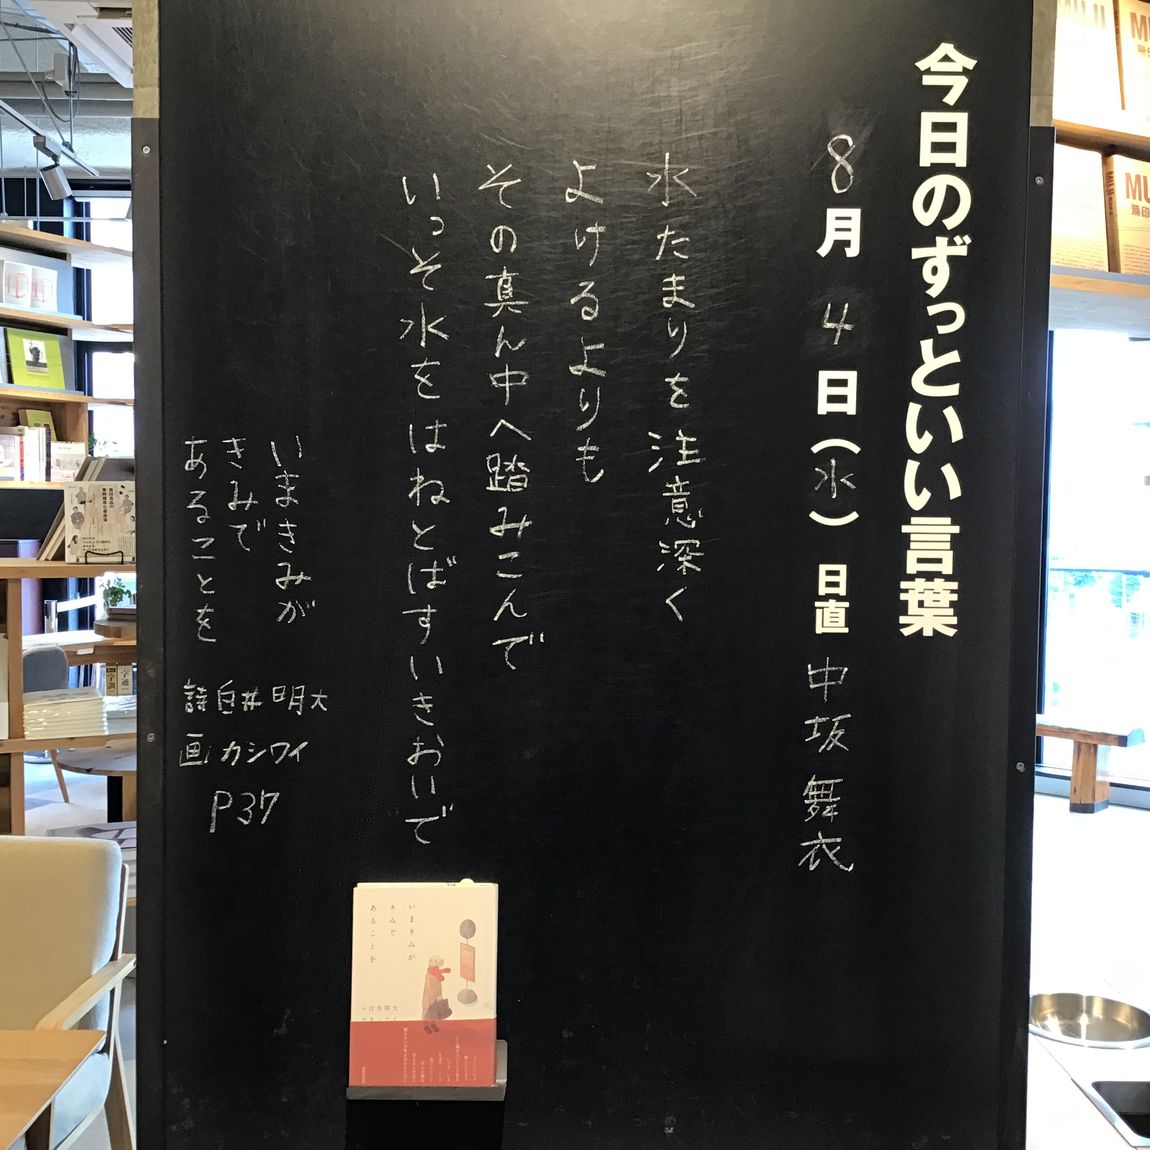 今日のずっといい言葉
8月4日(水) 日直 中坂舞衣
水たまりを注意深く
よけるよりも
その真ん中へ踏みこんで
いっそ水をはねとばすいきおいで
いまきみが
きみで
あることを
詩 白井明大
画 カシワイ
P37
いまきみが
きみで
あることを
白井明大
カシワイ
MUJI